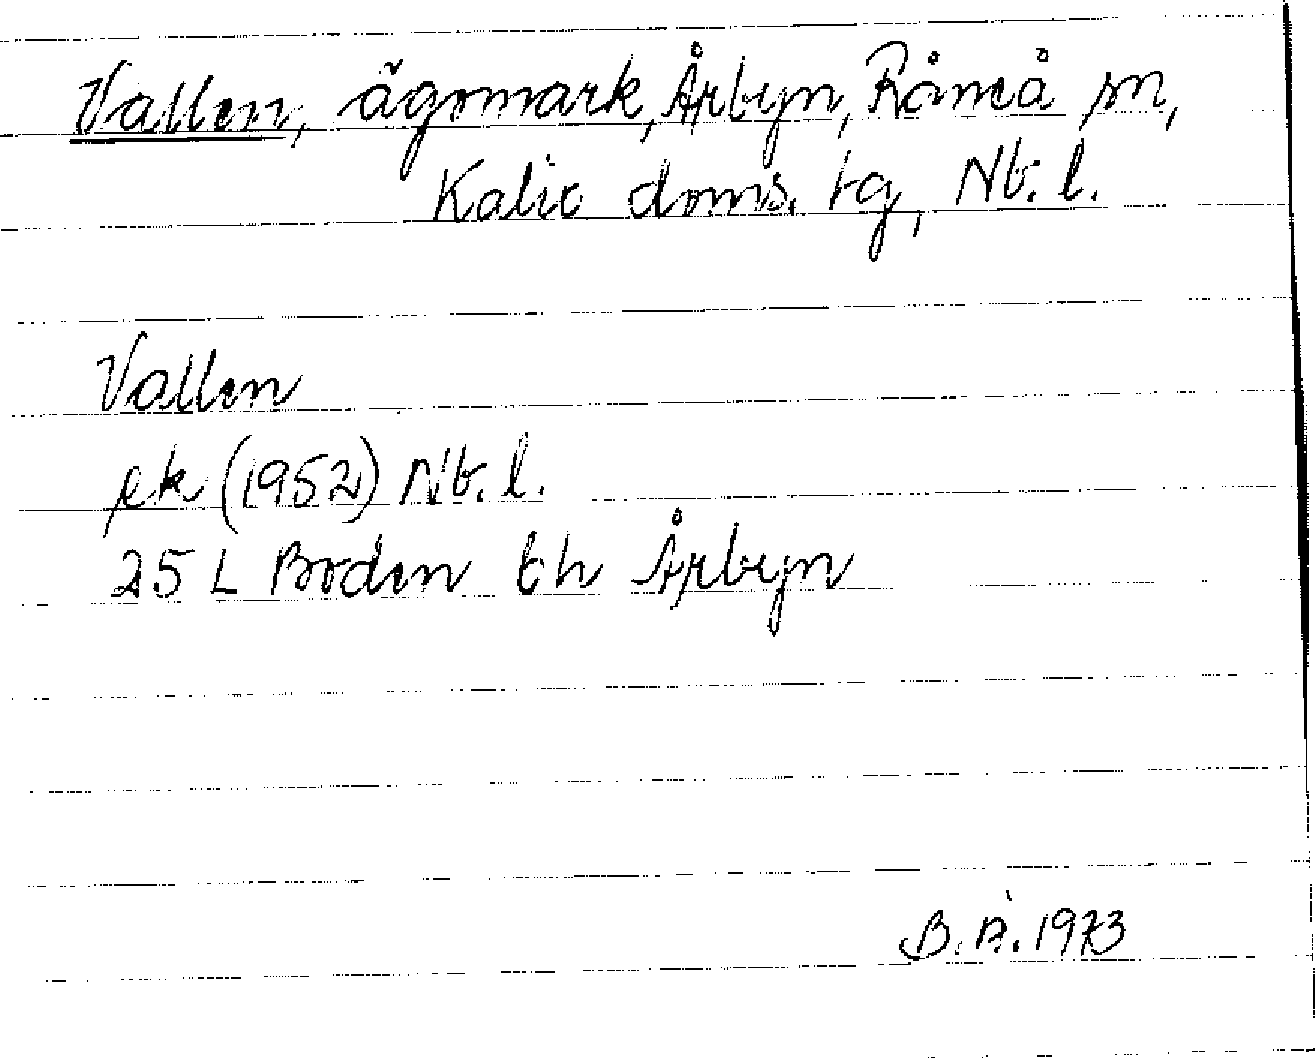 Vallen, ägomark, Årbyn, Råneå sn,
Kalix doms. tg, Nb. l.
Vallen
ek (1952) Nb. l.
25 L Boden bh Årbyn
B. Å. 1973